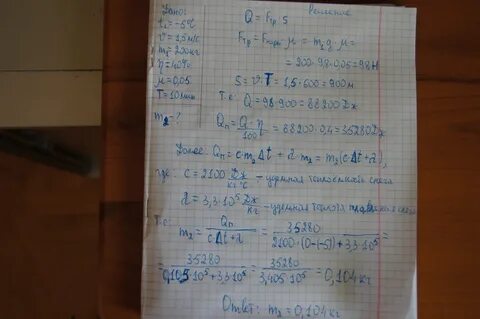 Дано:
t₁ = -5°C
v = 1,5 м/с
m₁ = 200 кг
η = 40%
μ = 0,05
T = 10 мин
m₂ - ?
Решение
Q = Fтр S
Fтр = Fнорм μ = m₁ g μ =
= 200·9,8·0,05 = 98 Н
S = v·T = 1,5·600 = 900 м
Т.е. Q = 98·900 = 88200 Дж
Qп = Q·η/100 = 88200·0,4 = 35280 Дж
Далее Qп = c·m₂ Δt + λ·m₂ = m₂(c·Δt + λ),
где c = 2100 Дж/кг°C - удельная теплоёмкость снега
λ = 3,3·10⁵ Дж/кг - удельная теплота плавления снега
Т.е. m₂ = Qп/(c·Δt + λ) = 35280/(2100·(0-(-5)) + 3,3·10⁵) =
= 35280/(0,105·10⁵ + 3,3·10⁵) = 35280/(3,405·10⁵) = 0,104 кг
Ответ: m₂ = 0,104 кг